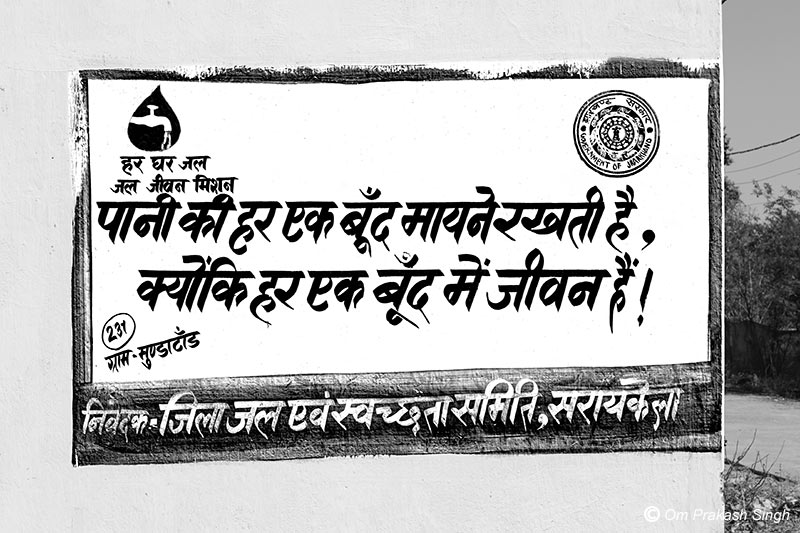 हर घर जल
जल जीवन मिशन
झारखण्ड सरकार
GOVERNMENT OF JHARKHAND
पानी की हर एक बूँद मायने रखती है,
क्योंकि हर एक बूँद में जीवन हैं!
231
ग्राम - मुण्डाटाँड
निवेदक - जिला जल एवं स्वच्छता समिति, सरायकेला
© Om Prakash Singh